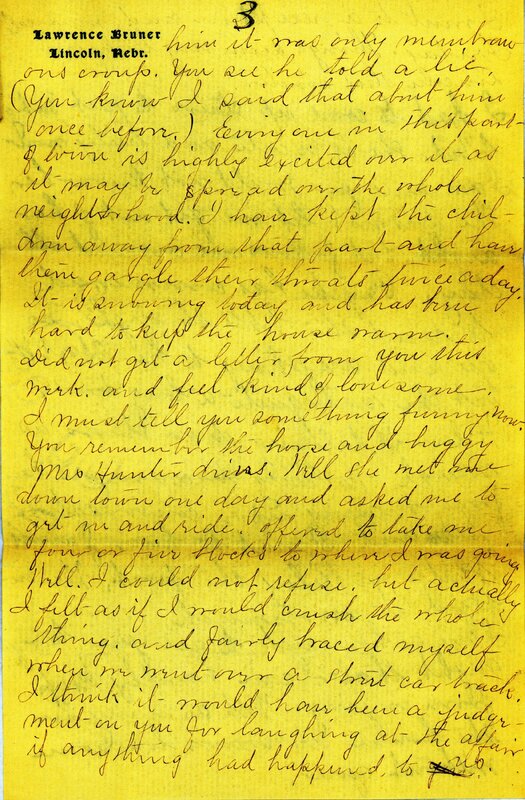 3
Lawrence Bruner
Lincoln, Nebr.
him it was only membran
ous croup. You see he told a lie.
(You know I said that about him
once before.) Everyone in this part
of town is highly excited over it as
it may be spread over the whole
neighborhood. I have kept the chil-
dren away from that part and have
them gargle their throats twice a day.
It is snowing today and has been
hard to keep the house warm.
Did not get a letter from you this
week. and feel kind of lonesome.
I must tell you something funny now.
You remember the horse and buggy
Mrs Hunter drives. Well she met me
down town one day and asked me to
get in and ride. offered to take me
four or five blocks to where I was going
Well. I could not refuse. but actually
I felt as if I would crush the whole
thing. and fairly braced myself
when we went over a street car track.
I think it would have been a judge-
ment on you for laughing at the affair
if anything had happened, to us.